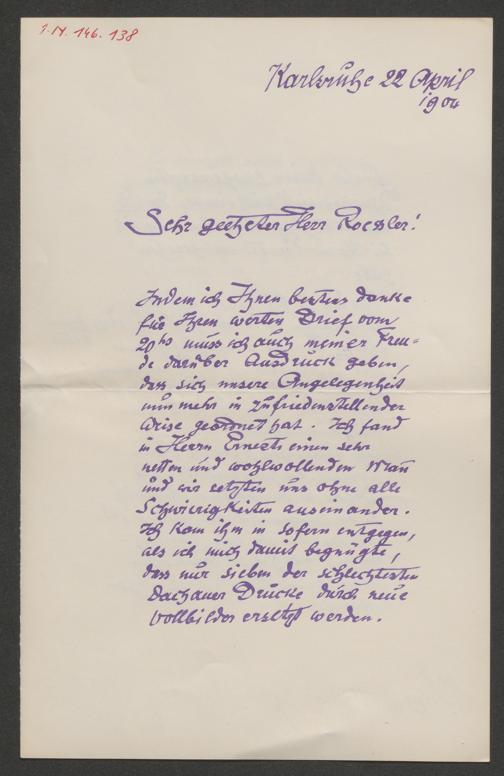 I.N. 146.138
Karlsruhe 22 April
1904
Sehr geehrter Herr Roessler!
Indem ich Ihnen bestens danke
für Ihren werten Brief vom
20ts muss ich auch meiner Freu-
de darüber Ausdruck geben,
dass sich unsere Angelegenheit
nun mehr in zufriedenstellender
Weise geordnet hat. Ich fand
in Herrn Ernests einen sehr
netten und wohlwollenden Man
und wir setzten uns ohne alle
Schwierigkeiten auseinander.
Ich kam ihm in sofern entgegen,
als ich mich damit begnügte,
dass nur sieben der schlechtesten
Dachauer Drucke durch neue
Vollbilder ersetzt werden.